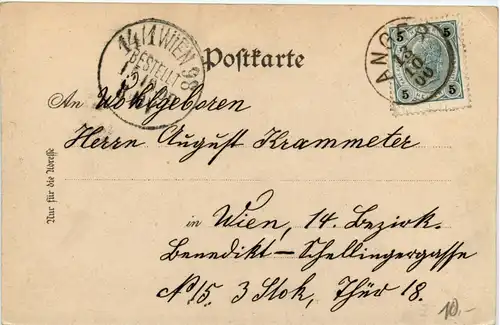 Postkarte
14/1 WIEN 98
BESTELLT
ANGER
5 5
5 5
An Wohlgeboren
Herrn August Krammeter
Nur für die Adresse
in Wien, 14. Bezirk.
Benedikt-Schellingergasse
No 15. 3 Stok, Thür 18.
10.-